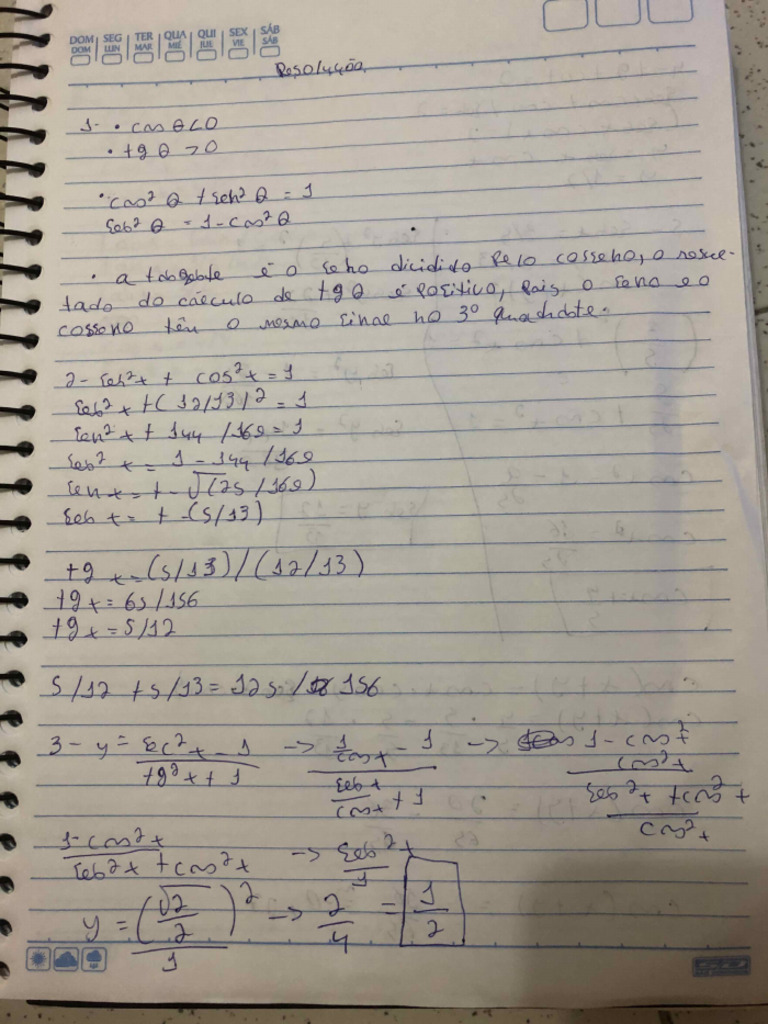 DOM SEG TER QUA QUI SEX SÁB
DOM LUN MAR MIÉ JUE VIE SÁB
Resolução
1- • cos θ < 0
• tg θ > 0
• cos² θ + sen² θ = 1
sen² θ = 1 - cos² θ
• a tangente é o seno dividido pelo cosseno, o resul-
tado do cálculo de tg θ é positivo, pois o seno e o
cosseno têm o mesmo sinal no 3º quadrante.
2- sen² x + cos² x = 1
sen² x + (12/13)² = 1
sen² x + 144/169 = 1
sen² x = 1 - 144/169
sen x = + - √(25/169)
sen x = + - (5/13)
tg x = (5/13)/(12/13)
tg x = 65/156
tg x = 5/12
5/12 + 5/13 = 125/156
3- y = sec² x - 1 / tg² x + 1 -> 1/cos x - 1 / sen x/cos x + 1 -> 1 - cos² x / cos² x / sen² x + cos² x / cos² x
1 - cos² x / sen² x + cos² x -> sen² x / 1
y = (√2/2)² / 1 -> 2/4 = 1/2